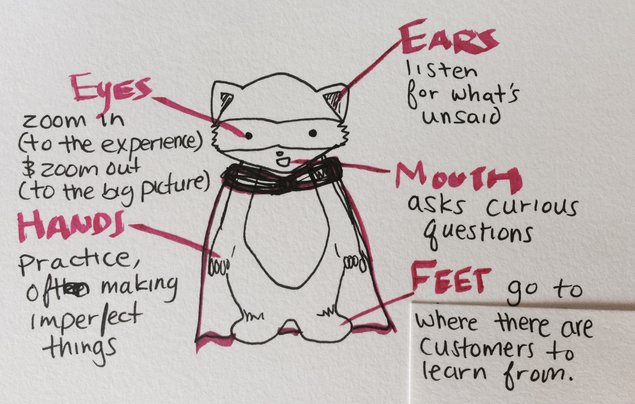 EYES
zoom in
(to the experience)
& zoom out
(to the big picture)
EARS
listen
for what's
unsaid
HANDS
practice,
making
imperfect
things
MOUTH
asks curious
questions
FEET go to
where there are
customers to
learn from.